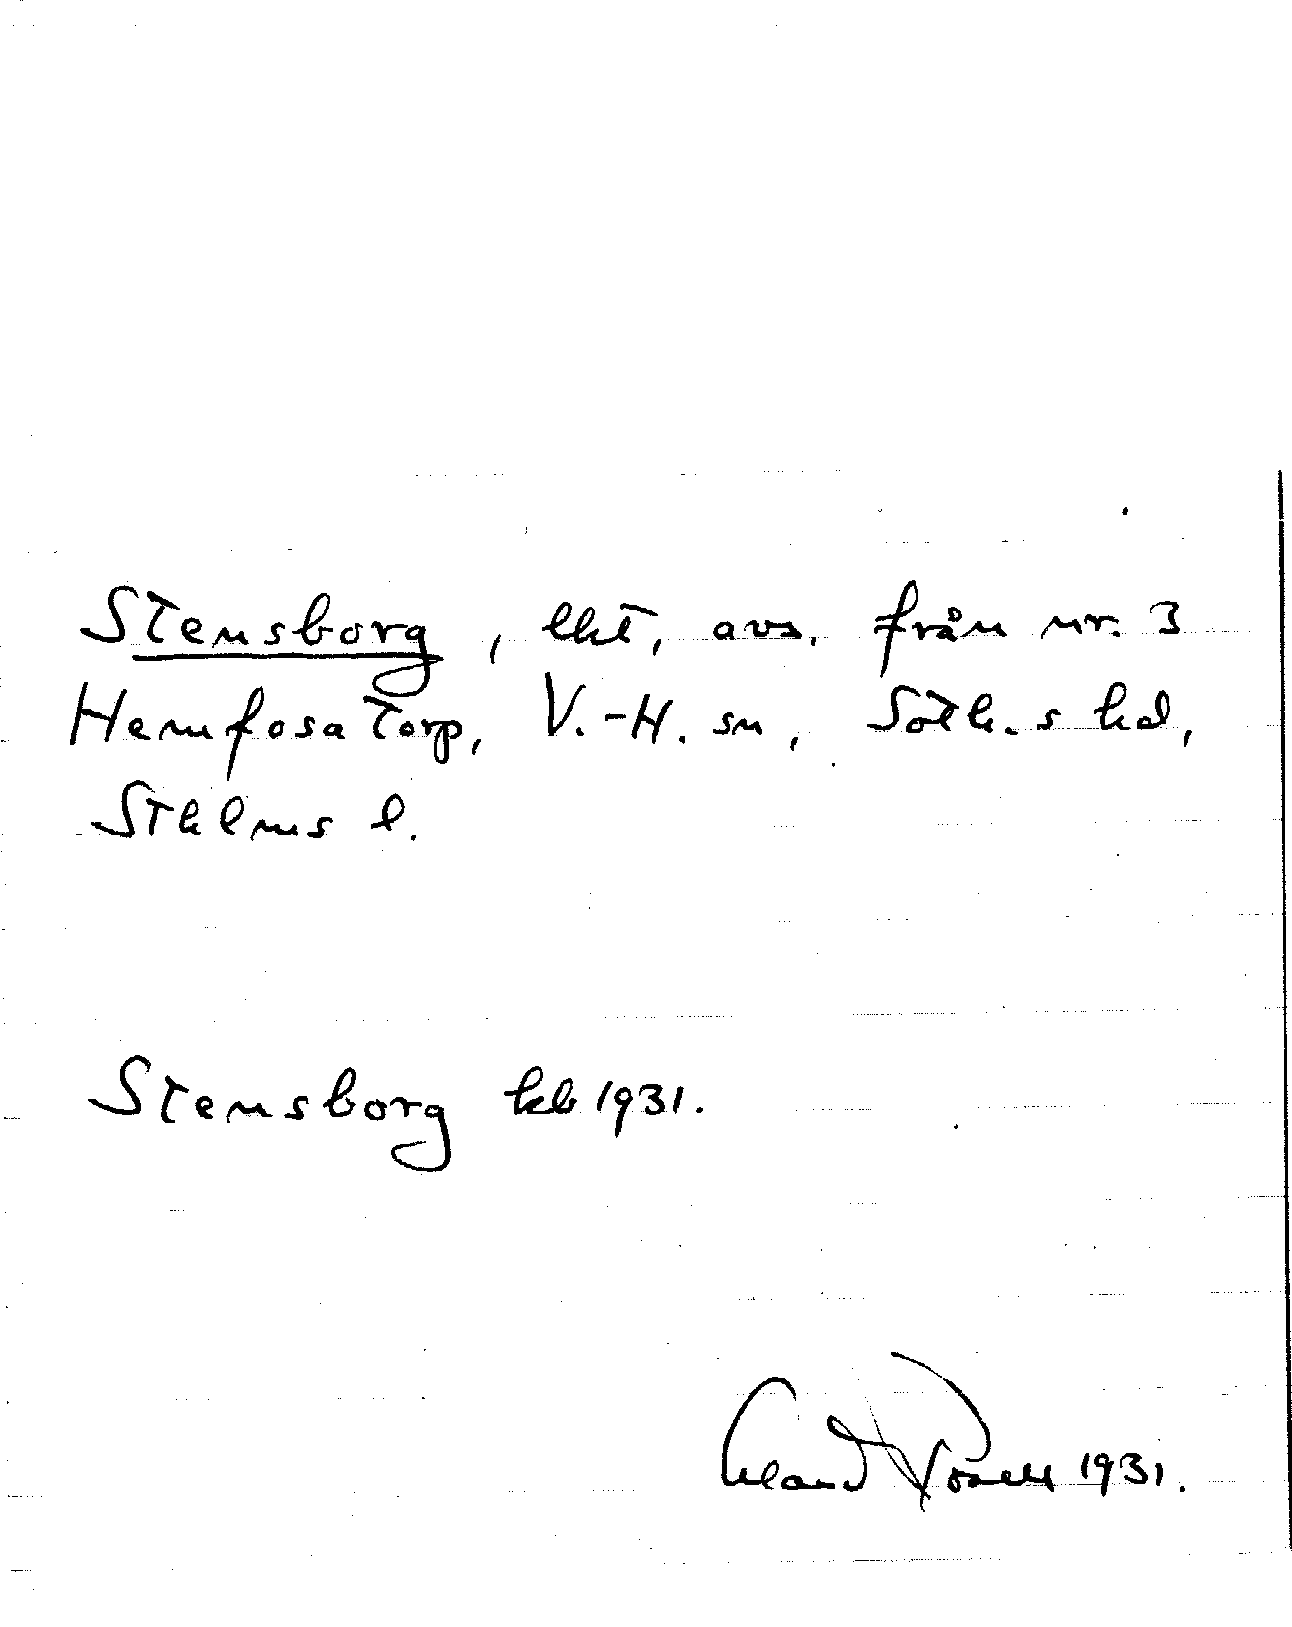 Stensborg, lht, avs. från nr. 3
Hemfosa Torp, V.-H. sn, Soth.s hd,
Sthlms l.
Stensborg kb 1931.
1931.